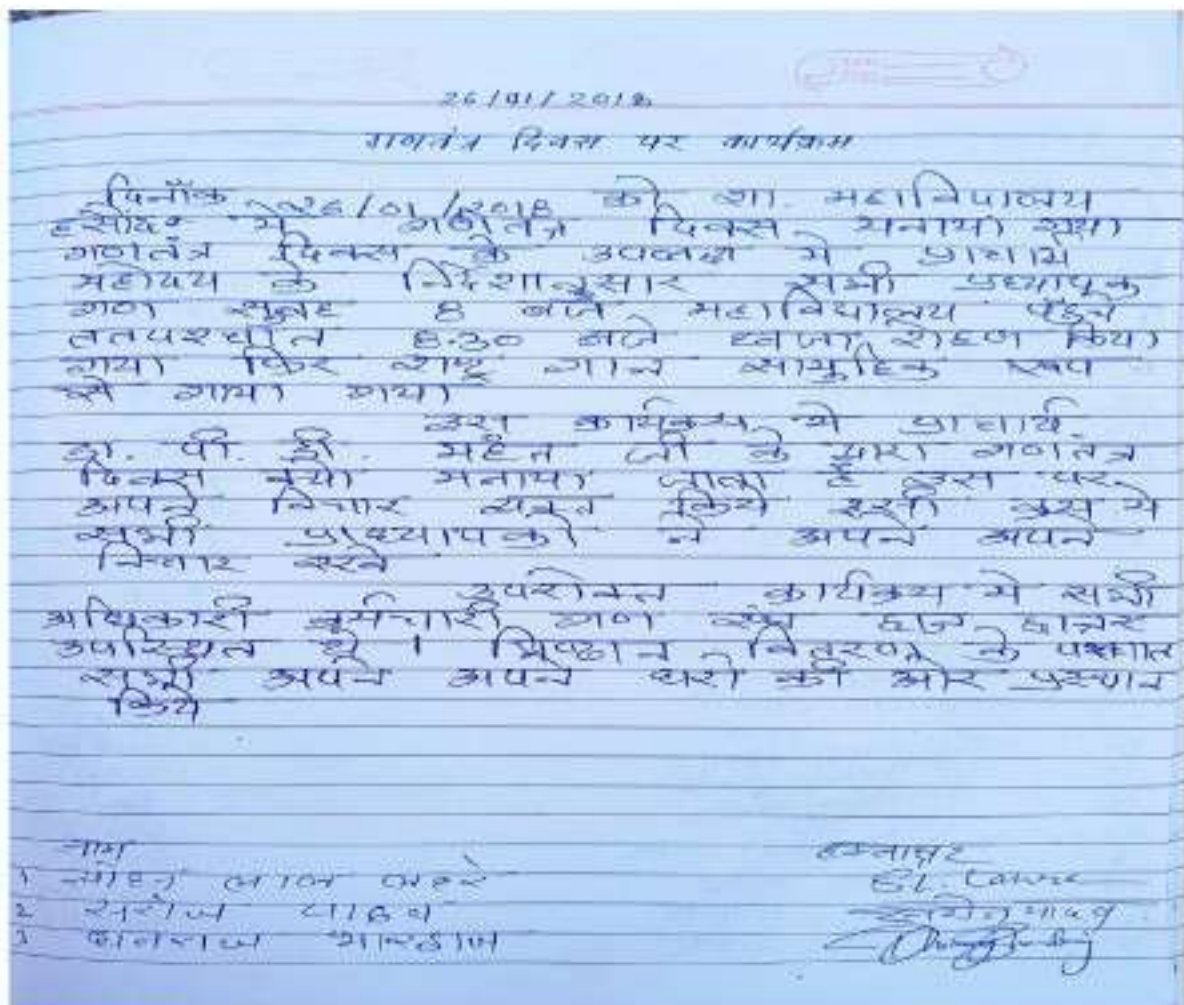 26/01/2018
गणतंत्र दिवस पर कार्यक्रम
दिनाँक 26/01/2018 को शा. महाविद्यालय
हसौद में गणतंत्र दिवस मनाया गया
गणतंत्र दिवस के उपलक्ष में प्राचार्य
महोदय के निर्देशानुसार सभी प्रध्यापक
गण सुबह 8 बजे महाविद्यालय पहुंचे
ततपश्चात 8.30 बजे ध्वजा रोहण किया
गया फिर राष्ट्र गान सामुहिक रूप
से गाया गया
इस कार्यक्रम मे प्राचार्य
डा. पी. डी. महंत जी के द्वारा गणतंत्र
दिवस क्यो मनाया जाता है इस पर
अपने विचार व्यक्त किये इसी क्रम मे
सभी प्राध्यापको ने अपने अपने
विचार रखे
उपरोक्त कार्यक्रम मे सभी
अधिकारी कर्मचारी गण एवं छात्र छात्राएं
उपस्थित थे । मिष्ठान वितरण के पश्चात
सभी अपने अपने घरो की ओर प्रस्थान
किये
नाम हस्ताक्षर
1 लाल लहरे
2 सरोज यादव यादव
3